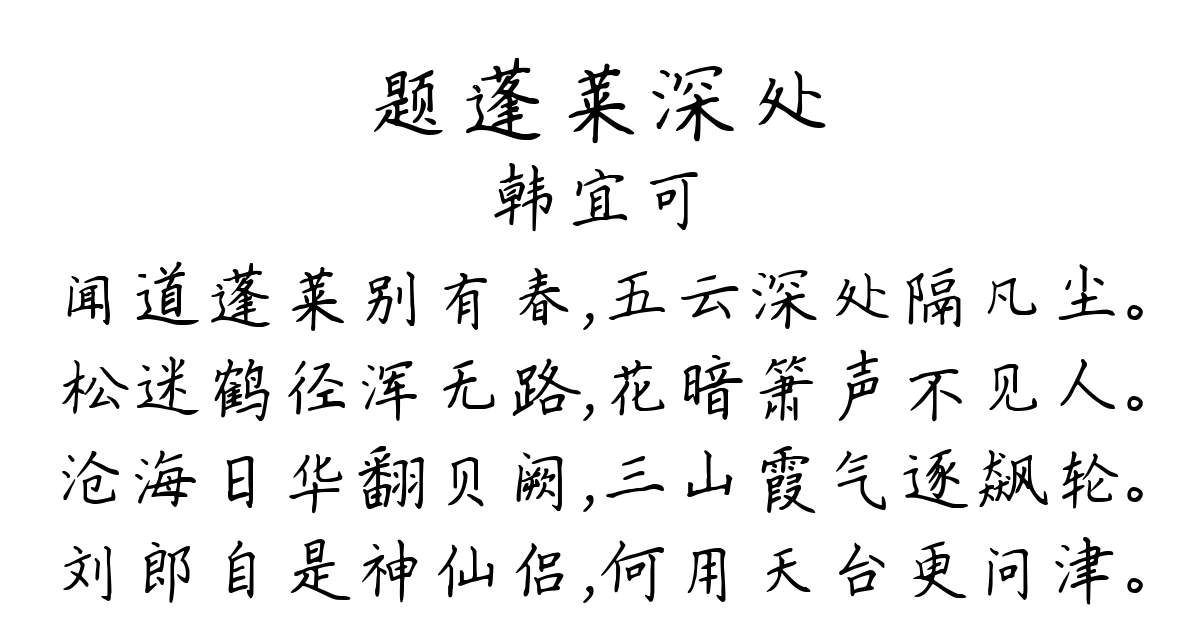 题蓬莱深处
韩宜可
闻道蓬莱别有春,五云深处隔凡尘。
松迷鹤径浑无路,花暗箫声不见人。
沧海日华翻贝阙,三山霞气逐飙轮。
刘郎自是神仙侣,何用天台更问津。